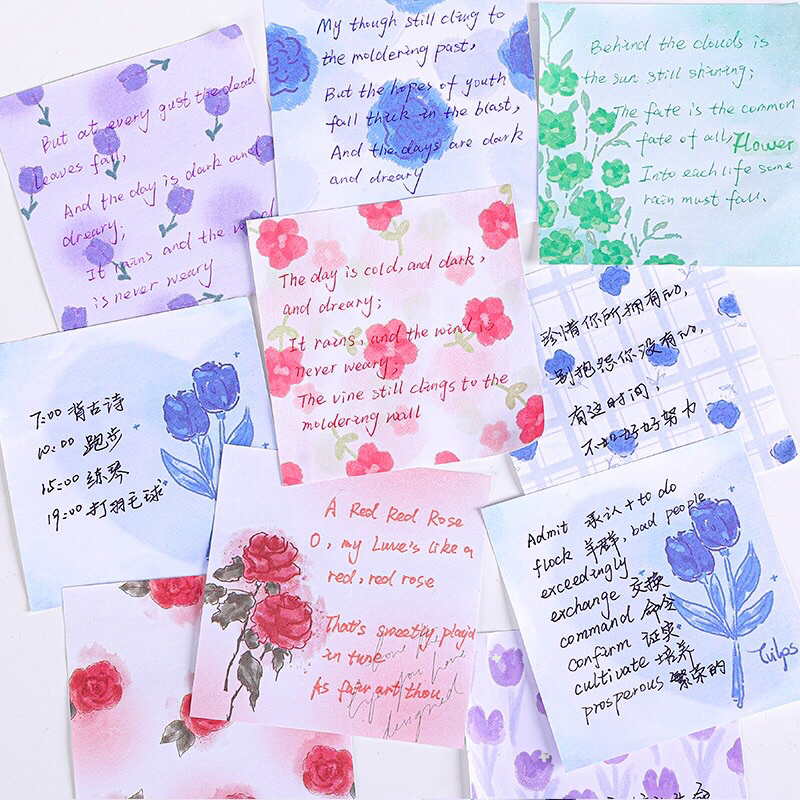 But at every gust the dead
leaves fall,
And the day is dark and
dreary;
It rains and the wind
is never weary
My though still cling to
the moldering past,
But the hopes of youth
fall thick in the blast,
And the days are dark
and dreary
Behind the clouds is
the sun still shining;
The fate is the common
fate of all,
Flower
Into each life some
rain must fall.
The day is cold, and dark,
and dreary;
It rains, and the wind is
never weary;
The vine still clings to the
moldering wall
珍惜你所拥有的,
别抱怨你没有的,
有这时间,
不如好好努力
7:00 背古诗
10:00 跑步
15:00 练琴
19:00 打羽毛球
A Red Red Rose
O, my Luve's like a
red, red rose
That's sweetly play'd
in tune
As fair art thou
designed
Admit 承认 + to do
flock 羊群, bad people
exceedingly
exchange 交换
command 命令
confirm 证实
cultivate 培养
prosperous 繁荣的
Tulips